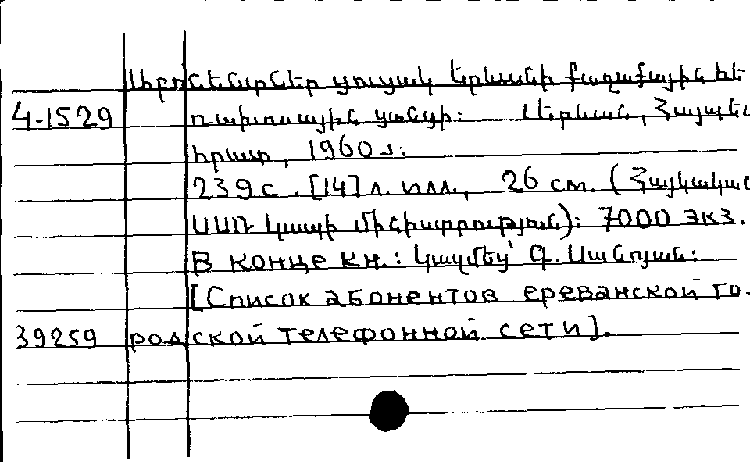 Աբոնենտներ ցուցակ Երևանի քաղաքային հե
4-1529 ռախոսային ցանցի: Երևան, Հայպետ
հրատ, 1960 թ.
239 с. [14] л. илл., 26 см. (Հայկական
ՍՍՌ կապի մինիստրություն): 7000 экз.
В конце кн.: Կազմեց՝ Գ. Սանոյան:
[Список абонентов ереванской го-
39259 родской телефонной сети].